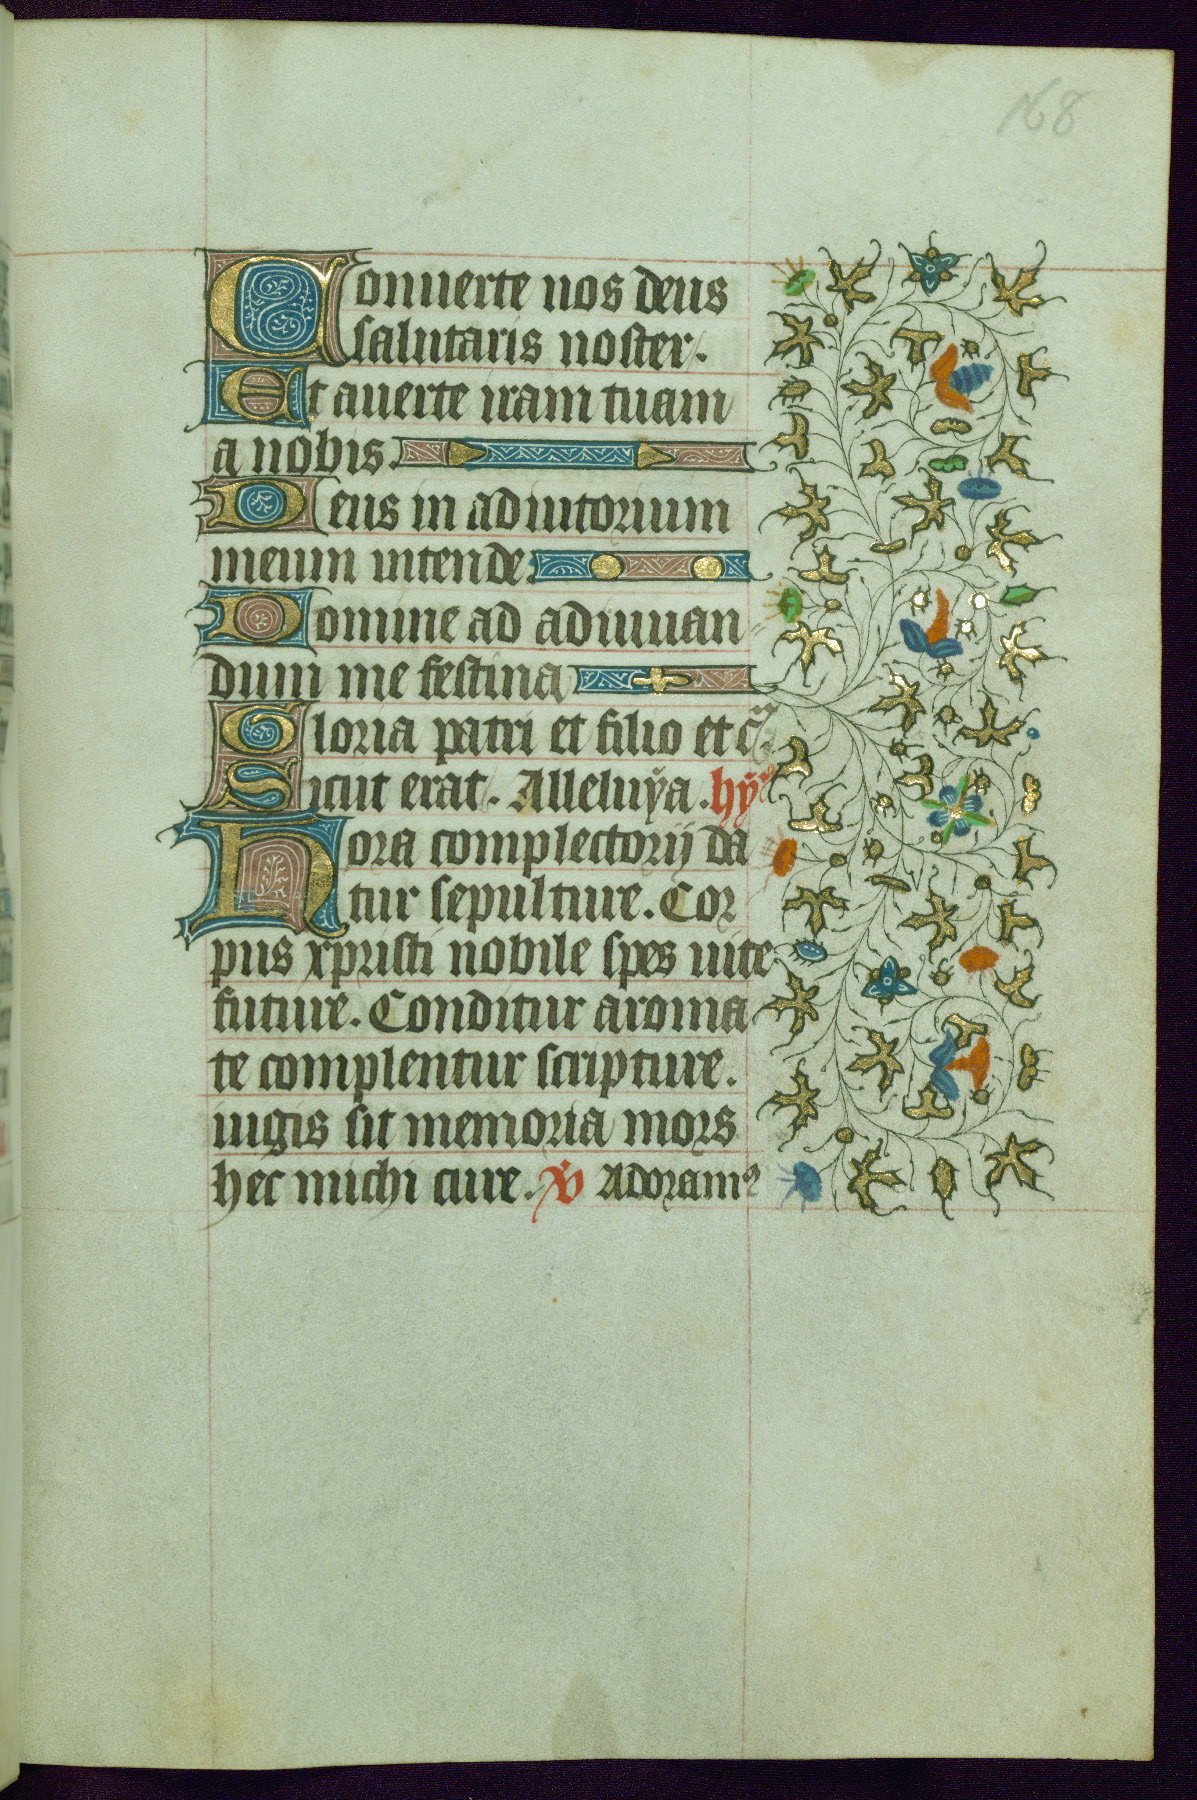 168
Conuerte nos deus
salutaris noster.
Et auerte iram tuam
a nobis.
Deus in adiutorium
meum intende.
Domine ad adiuuan
dum me festina
Gloria patri et filio et c̃.
Sicut erat. Alleluẏa. hẏ
Hora complectorij da
tur sepulture. Cor
pus xpristi nobile spes uite
future. Conditur aroma
te complentur scripture.
iugis sit memoria mors
hec michi cure. ℣ Adoramꝰ